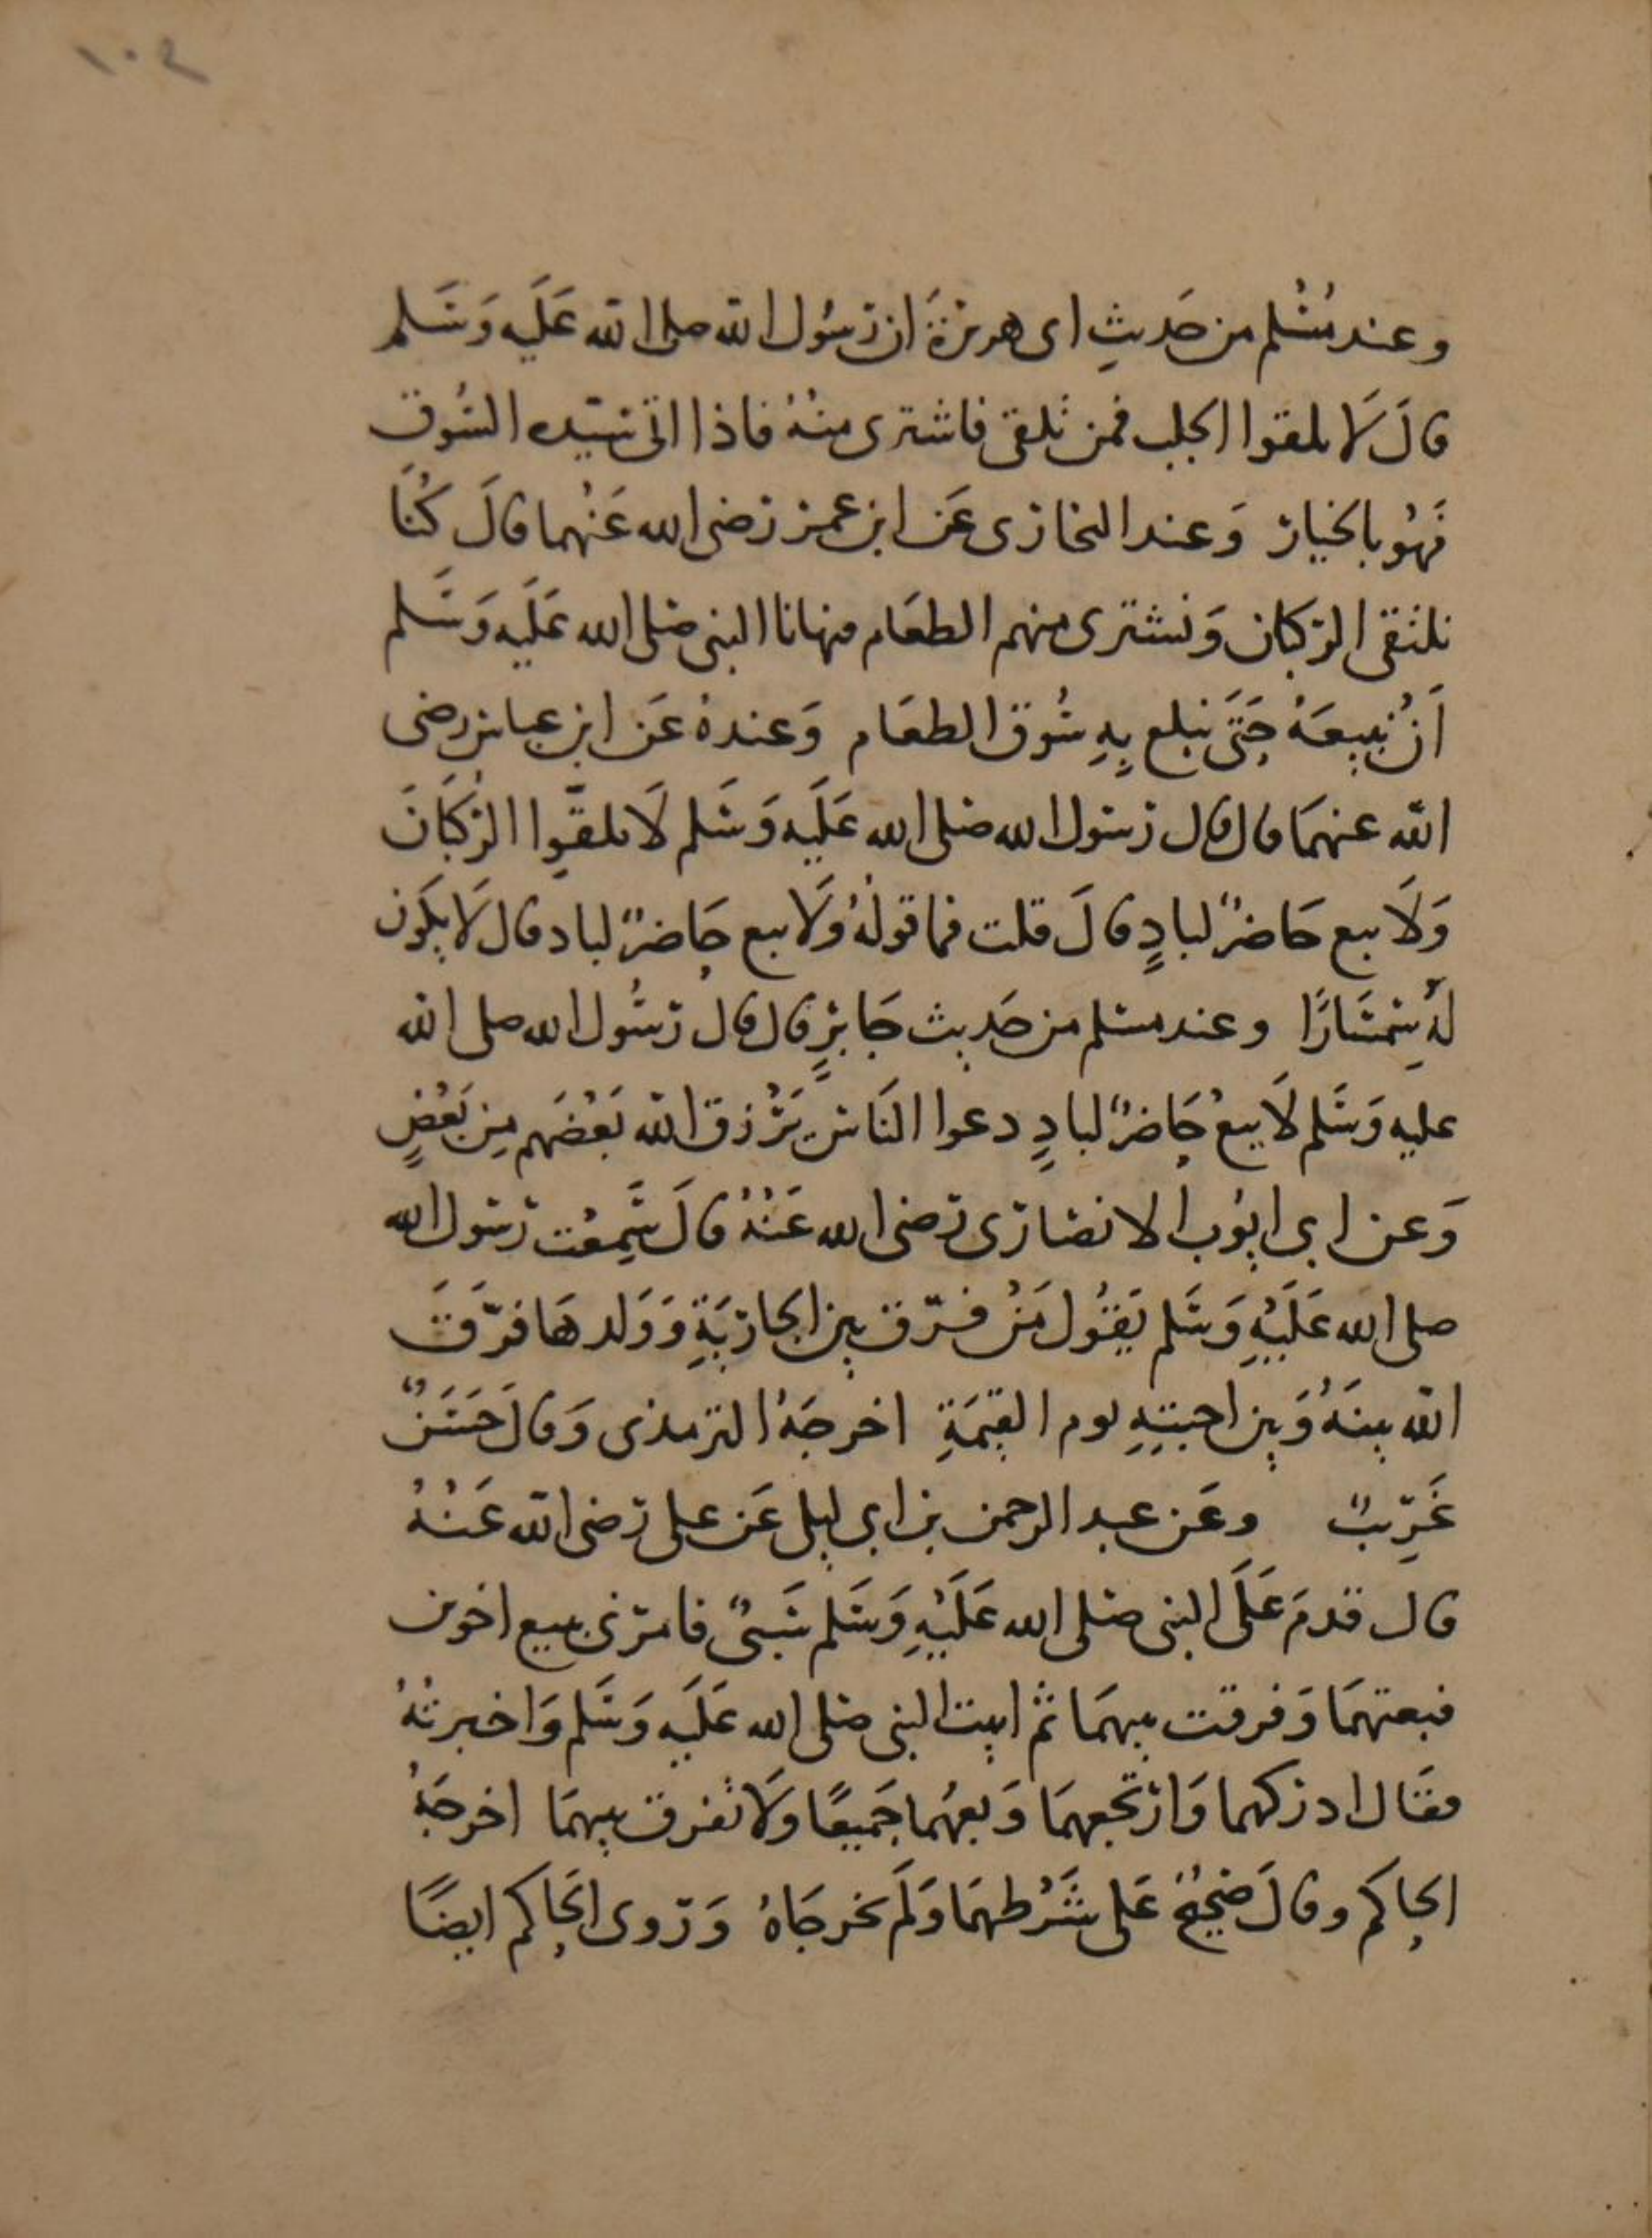 ١٠٢
وعند مُسْلم من حَديثِ ابى هريرةَ ان رسُول الله صلى الله عَلَيه وَسَلم
قالَ لَا تلقوا الجلب فمن تَلقى فاشترى منْهُ فاذا اتى سَيّده السُوق
فَهُو بالخيار وَعند البخارى عَن ابن عمر رضى الله عَنْهما قالَ كُنَّا
نلتقى الركبان وَنشترى منهم الطعَام فنهانا النبى صلى الله عَلَيه وَسَلم
اَنْ نبيعَهُ حَتَّى نبلغ بِهِ سُوق الطعَام وَعندهُ عَن ابن عباس رضى
الله عنهمَا قال قال رسول الله صلى الله عَلَيه وَسَلم لَا تلقَّوا الرُكبَانَ
وَلَا يبع حَاضرٌ لبادٍ قالَ قلت فما قولُهُ وَلَا يبع حَاضرٌ لباد قال لَا يكَون
لهُ سِمْسَارًا وعند مسلم من حَديث جَابرٍ قال قال رسُول الله صلى الله
عليه وَسَلم لَا يبعْ حَاضرٌ لبادٍ دعوا النَاسَ يَرْزق الله بَعْضَهم مِن بَعْضٍ
وَعن ابى ايُوب الانصارى رضى الله عَنْهُ قالَ سَمِعْت رسول الله
صلى الله عَلَيْهِ وَسَلم يَقُول مَنْ فرّق بين الجاريَةِ وَوَلدهَا فرّقَ
الله بينَهُ وَبين احبتِهِ يوم القيمَةِ اخرجَهُ الترمذى وَقالَ حَسَنٌ
غَرِيبٌ وعَن عبد الرحمن بن ابى ليلى عَن على رضى الله عَنْهُ
قال قدمَ عَلَى النبى صلى الله عَلَيْهِ وَسَلم سَبىٌ فامرنى ببيع اخوين
فبعتهمَا وَفرقت بينهمَا ثم اتيت النبى صلى الله عَلَيه وَسَلم وَاخبرتُهُ
فقَال ادركهما وَارتجعهمَا وَبعهُما جَميعًا وَلَا تفرق بينهمَا اخرجَهُ
الحاكم وقالَ صَحيحٌ عَلى شَرْطهمَا وَلَم يخرجَاهُ وَروى الحَاكم ايضًا